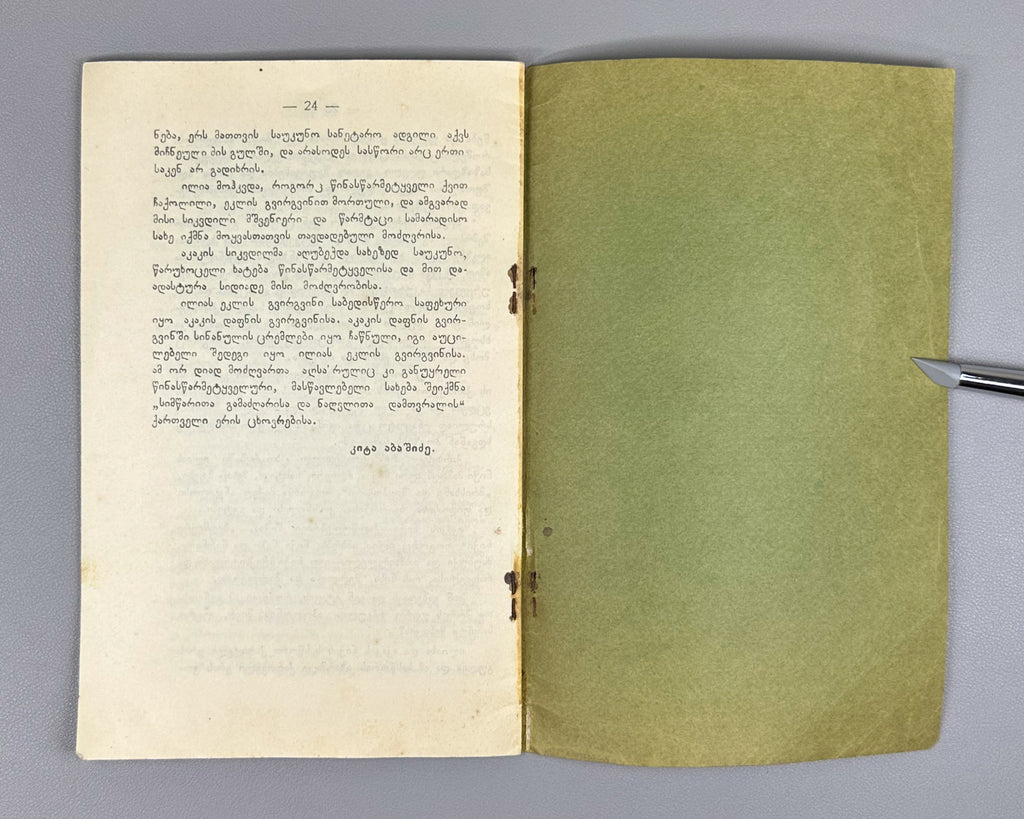 — 24 —
ნება, ერს მათთვის საუკუნო სანეტარო ადგილი აქვს
მიჩნეული მის გულში, და არასოდეს სასწორი არც ერთი-
საკენ არ გადიხრის.
ილია მოჰკვდა, როგორც წინასწარმეტყველი ქვით
ჩაქოლილი, ეკლის გვირგვინით მორთული, და ამგვარად
მისი სიკვდილი მშვენიერი და წარმტაცი სამარადისო
სახე იქმნა მოყვასთათვის თავდადებული მოძღვრისა.
აკაკის სიკვდილმა აღუბეჭდა სახეზედ საუკუნო,
წარუხოცელი ხატება წინასწარმეტყველისა და მით და-
ადასტურა სიდიადე მისი მოძღვრობისა.
ილიას ეკლის გვირგვინი საბედისწერო საფეხური
იყო აკაკის დაფნის გვირგვინისა. აკაკის დაფნის გვირ-
გვინში სინანულის ცრემლები იყო ჩაწნული, იგი აუცი-
ლებელი შედეგი იყო ილიას ეკლის გვირგვინისა.
ამ ორ დიად მოძღვართა აღსარულიც კი განუყრელი
წინასწარმეტყველური, მასწავლებელი სახება შეიქმნა
„სიმწარითა გამაძღარისა და ნაღვლითა დამთვრალის“
ქართველი ერის ცხოვრებისა.
კიტა აბაშიძე.